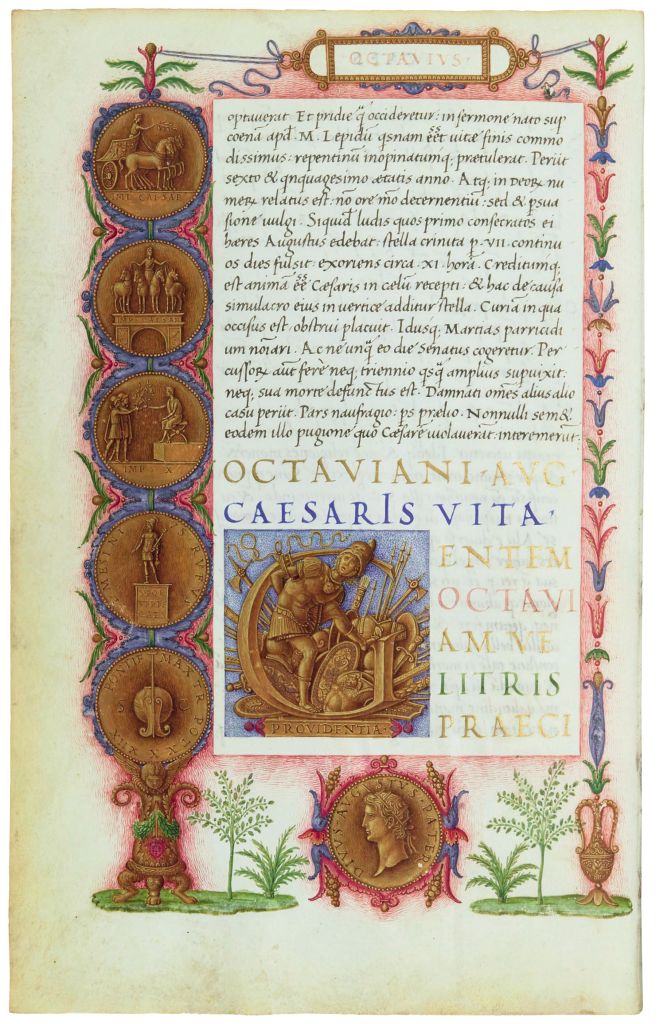 OCTAVIUS·
optaverat. Et pridie q̃ occideretur: in sermone nato sup
coena apd̃. M. Lepidũ q̃snam eẽt vitæ finis commo
dissimus: repentinũ inopinatumq; prætulerat. Periit
sexto & qnquagesimo ætatis anno. Atq; in DEORꝜ nu
merꝜ relatus est: nõ ore mõ decernentiũ: sed & psua
sione uulgi. Siquid̃ ludis quos primo consecratos ei
hæres Augustus edebat: stella crinita p. VII. continu
os dies fulsit: exoriens circa. XI. horã. Creditumq;
est animã eẽ Cæsaris in cælũ recepti: & hac de causa
simulacro eius in vertice additur stella. Curiã in qua
occisus est: obstrui placuit: Idusq; Martias parricidi
um noĩari: Ac ne unq̃ eo die Senatus cogeretur. Per
cussorꝜ aut̃ fere neq; triennio qsq̃ amplius supuixit:
neq; sua morte defunctus est. Damnati om̃es alius alio
casu periit. Pars naufragio: ps prælio. Nonnulli sem&
eodem illo pugione quo Cæsarẽ uiolauerant: interemerut̃.
OCTAVIANI·AVG·
CAESARIS VITA·
ENTEM
OCTAVI
AM VE
LITRIS
PRAECI
PROVIDENTIA·
IMP CAESAR
IMP CAESAR
IMP X
MESCINIVS RVFVS
PONTIF MAX TR POT XXX
S C
DIVVS AVGVSTVS PATER